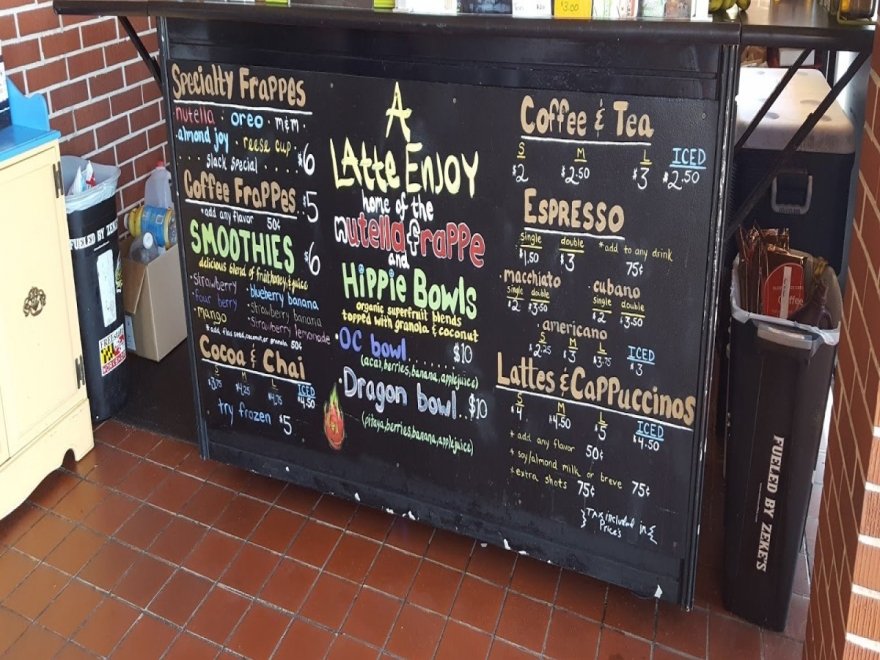 Specialty Frappes
nutella · oreo · m&m ·
almond joy · reese cup
slack special . . . . $6
Coffee Frappes $5
*add any flavor 50¢
SMOOTHIES $6
delicious blend of fruit, honey, & juice
· Strawberry · blueberry banana
· four berry · strawberry banana
· mango · Strawberry lemonade
Cocoa & Chai
S M L ICED
$3.75 $4.25 $4.75 $4.50
try frozen $5
A
Latte Enjoy
home of the
nutella frappe
and
Hippie Bowls
organic superfruit blends
topped with granola & coconut
· OC bowl . . . . . . $10
(acai, berries, banana, applejuice)
· Dragon bowl . . $10
(pitaya, berries, banana, applejuice)
Coffee & Tea
S M L ICED
$2 $2.50 $3 $2.50
Espresso
single double *add to any drink
$1.50 $3 75¢
· macchiato · cubano
single double single double
$2 $3.50 $2 $3.50
· americano
S M L ICED
$2.25 $3 $3.75 $3
Lattes & Cappuccinos
S M L ICED
$4 $4.50 $5 $4.50
* add any flavor 50¢
* soy/almond milk or breve 75¢
* extra shots 75¢
Tax included in
Prices
FUELED BY ZEKE'S
FUELED BY ZEKE'S
Coffee